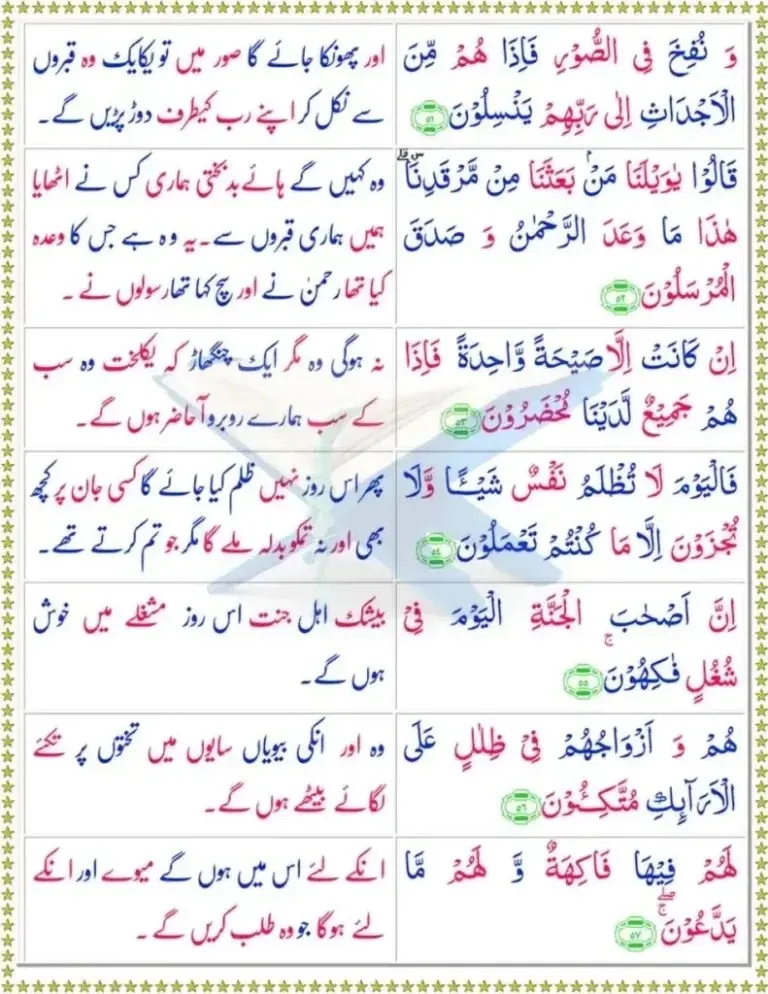 وَ نُفِخَ فِی الصُّوۡرِ فَاِذَا هُمۡ مِّنَ
الۡاَجۡدَاثِ اِلٰی رَبِّهِمۡ یَنۡسِلُوۡنَ ﴿۵۱﴾
اور پھونکا جائے گا صور میں تو یکایک وہ قبروں
سے نکل کر اپنے رب کیطرف دوڑ پڑیں گے۔
قَالُوۡا یٰوَیۡلَنَا مَنۡۢ بَعَثَنَا مِنۡ مَّرۡقَدِنَا ٜۘؐ
هٰذَا مَا وَعَدَ الرَّحۡمٰنُ وَ صَدَقَ
الۡمُرۡسَلُوۡنَ ﴿۵۲﴾
وہ کہیں گے ہائے بدبختی ہماری کس نے اٹھایا
ہمیں ہماری قبروں سے۔ یہ وہ ہے جس کا وعدہ
کیا تھا رحمٰن نے اور سچ کہا تھا رسولوں نے ۔
اِنۡ کَانَتۡ اِلَّا صَیۡحَةً وَّاحِدَةً فَاِذَا
هُمۡ جَمِیۡعٌ لَّدَیۡنَا مُحۡضَرُوۡنَ ﴿۵۳﴾
نہ ہوگی وہ مگر ایک چنگھاڑ کہ یکلخت وہ سب
کے سب ہمارے روبرو آ حاضر ہوں گے۔
فَالۡیَوۡمَ لَا تُظۡلَمُ نَفۡسٌ شَیۡـًٔا وَّلَا
تُجۡزَوۡنَ اِلَّا مَا کُنۡتُمۡ تَعۡمَلُوۡنَ ﴿۵۴﴾
پھر اس روز نہیں ظلم کیا جائے گا کسی جان پر کچھ
بھی اور نہ تمکو بدلہ ملے گا مگر جو تم کرتے تھے۔
اِنَّ اَصۡحٰبَ الۡجَنَّةِ الۡیَوۡمَ فِیۡ
شُغُلٍ فٰکِهُوۡنَ ۚ﴿۵۵﴾
بیشک اہل جنت اس روز مشغلے میں خوش
ہوں گے۔
هُمۡ وَ اَزۡوَاجُهُمۡ فِیۡ ظِلٰلٍ عَلَی
الۡاَرَآئِکِ مُتَّکِـُٔوۡنَ ﴿۵۶﴾
وہ اور انکی بیویاں سایوں میں تختوں پر تکئے
لگائے بیٹھے ہوں گے۔
لَهُمۡ فِیۡهَا فَاکِهَةٌ وَّ لَهُمۡ مَّا
یَدَّعُوۡنَ ﴿ۚۖ۵۷﴾
انکے لئے اس میں ہوں گے میوے اور انکے
لئے ہوگا جو وہ طلب کریں گے ۔